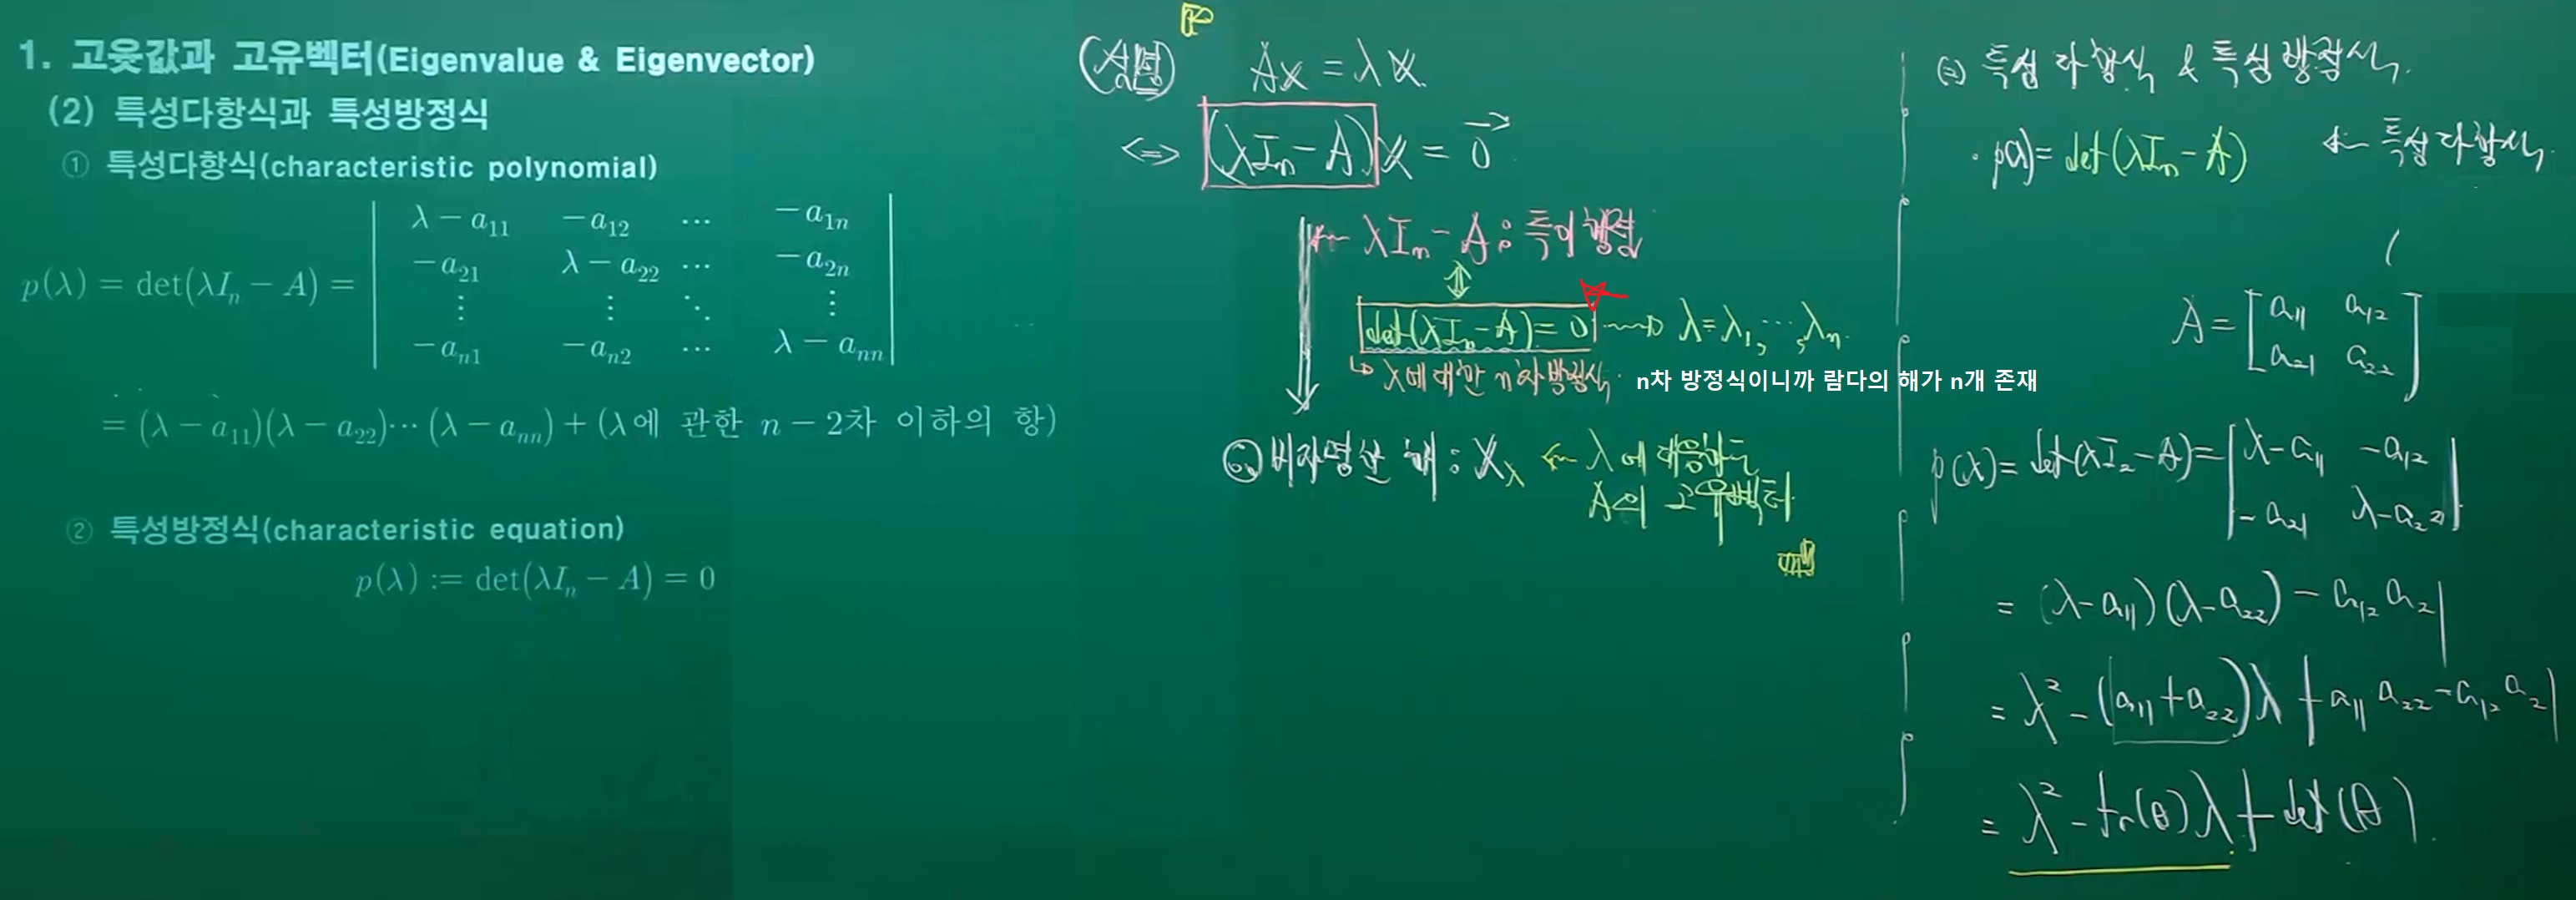 1. 고윳값과 고유벡터(Eigenvalue & Eigenvector)
(2) 특성다항식과 특성방정식
① 특성다항식(characteristic polynomial)
p(λ) = det(λIₙ − A) =
λ − a₁₁ −a₁₂ ⋯ −a₁ₙ
−a₂₁ λ − a₂₂ ⋯ −a₂ₙ
⋮ ⋮ ⋱ ⋮
−aₙ₁ −aₙ₂ ⋯ λ − aₙₙ
= (λ − a₁₁)(λ − a₂₂)⋯(λ − aₙₙ) + (λ에 관한 n − 2차 이하의 항)
② 특성방정식(characteristic equation)
p(λ) := det(λIₙ − A) = 0
(설명) Ax = λx
⟺ (λIₙ − A)x = 0⃗
← λIₙ − A : 특이행렬
↕
det(λIₙ − A) = 0 → λ = λ₁, ⋯, λₙ
↳ λ에 대한 n차 방정식. n차 방정식이니까 람다의 해가 n개 존재
비자명한 해 : x_λ ← λ에 대응하는
A의 고유벡터
특성다항식 & 특성방정식.
· p(λ) = det(λIₙ − A) ← 특성다항식.
A = [a₁₁ a₁₂
a₂₁ a₂₂]
p(λ) = det(λI₂ − A) = |λ−a₁₁ −a₁₂
−a₂₁ λ−a₂₂|
= (λ−a₁₁)(λ−a₂₂) − a₁₂a₂₁
= λ² − (a₁₁+a₂₂)λ + a₁₁a₂₂ − a₁₂a₂₁
= λ² − tr(A)λ + det(A).